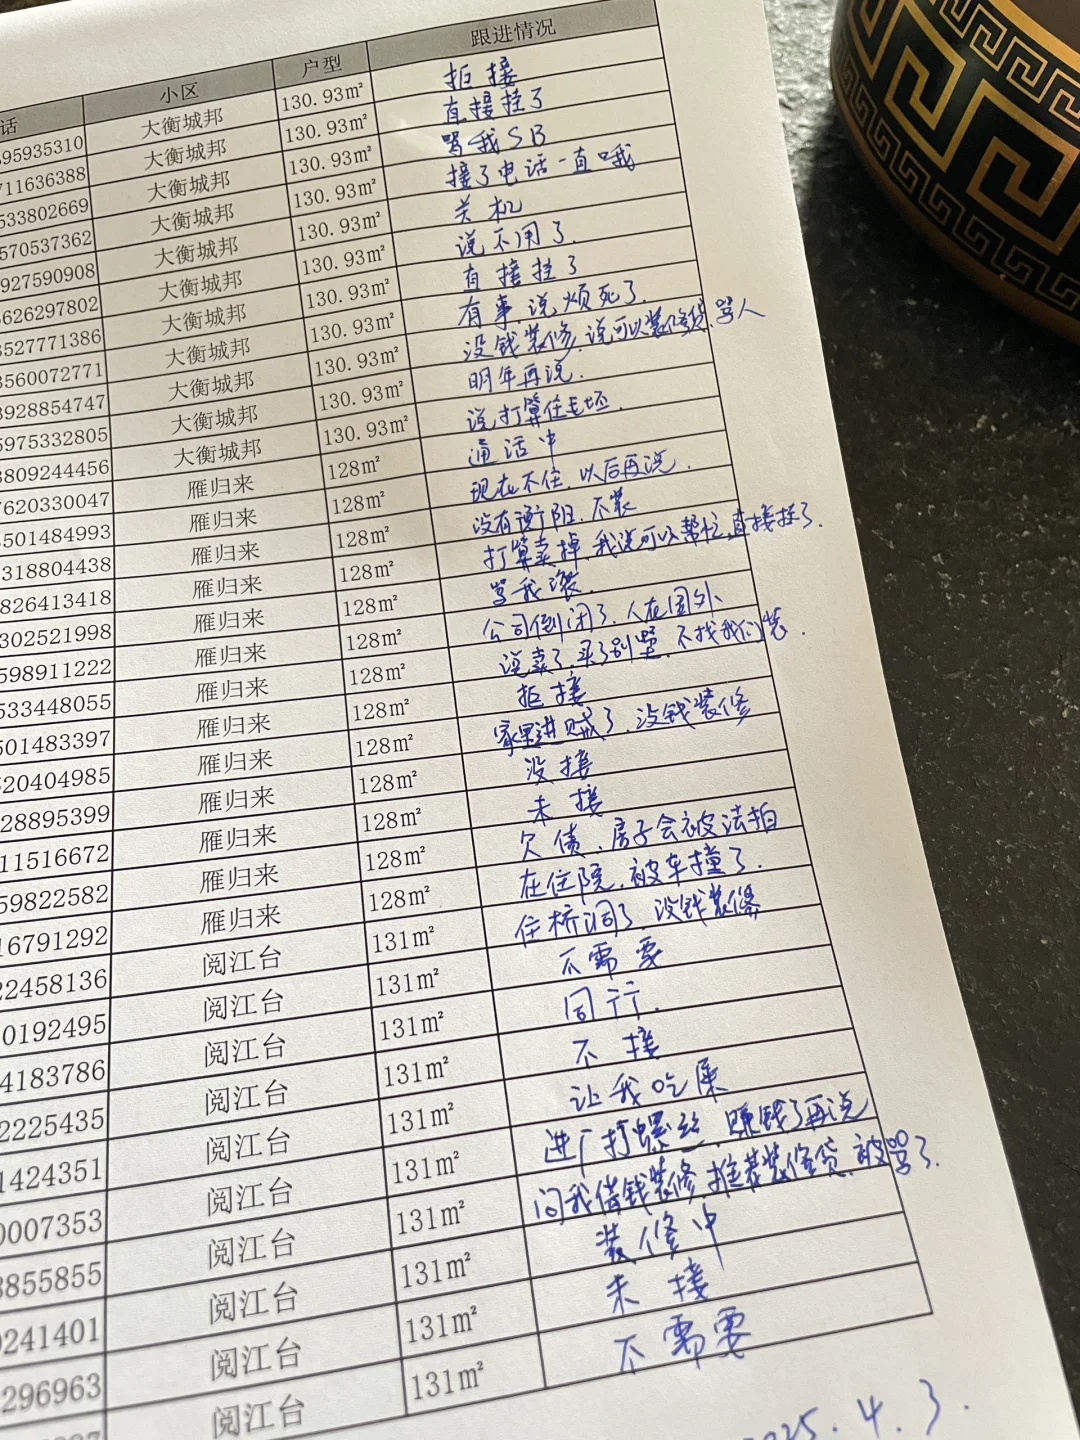 话 小区 户型 跟进情况
95935310 大衡城邦 130.93㎡ 拒接
711636388 大衡城邦 130.93㎡ 直接挂了
533802669 大衡城邦 130.93㎡ 骂我SB
570537362 大衡城邦 130.93㎡ 接了电话一直哦
927590908 大衡城邦 130.93㎡ 关机
626297802 大衡城邦 130.93㎡ 说不用了.
3527771386 大衡城邦 130.93㎡ 直接挂了
3560072771 大衡城邦 130.93㎡ 有事说烦死了.
3928854747 大衡城邦 130.93㎡ 没钱装修.说可以装修贷.骂人
5975332805 大衡城邦 130.93㎡ 明年再说.
3809244456 大衡城邦 130.93㎡ 说打算住毛坯.
7620330047 雁归来 128㎡ 通话中
501484993 雁归来 128㎡ 现在不住.以后再说.
318804438 雁归来 128㎡ 没有 不装
826413418 雁归来 128㎡ 打算卖掉.我说可以帮忙,直接挂了.
302521998 雁归来 128㎡ 骂我滚.
598911222 雁归来 128㎡ 公司倒闭了.人在国外
533448055 雁归来 128㎡ 说卖了.买了别墅.不找我们装.
501483397 雁归来 128㎡ 拒接
520404985 雁归来 128㎡ 家里进贼了.没钱装修
28895399 雁归来 128㎡ 没接
11516672 雁归来 128㎡ 未接
59822582 雁归来 128㎡ 欠债.房子会被法拍
16791292 雁归来 128㎡ 在住院.被车撞了.
22458136 阅江台 131㎡ 住桥洞了.没钱装修
0192495 阅江台 131㎡ 不需要
4183786 阅江台 131㎡ 同行.
2225435 阅江台 131㎡ 不接
1424351 阅江台 131㎡ 让我吃屎
0007353 阅江台 131㎡ 进厂打螺丝.赚钱了再说
3855855 阅江台 131㎡ 问我借钱装修.推荐装修贷.被骂了.
9241401 阅江台 131㎡ 装修中
296963 阅江台 131㎡ 未接
阅江台 131㎡ 不需要
2025.4.3.